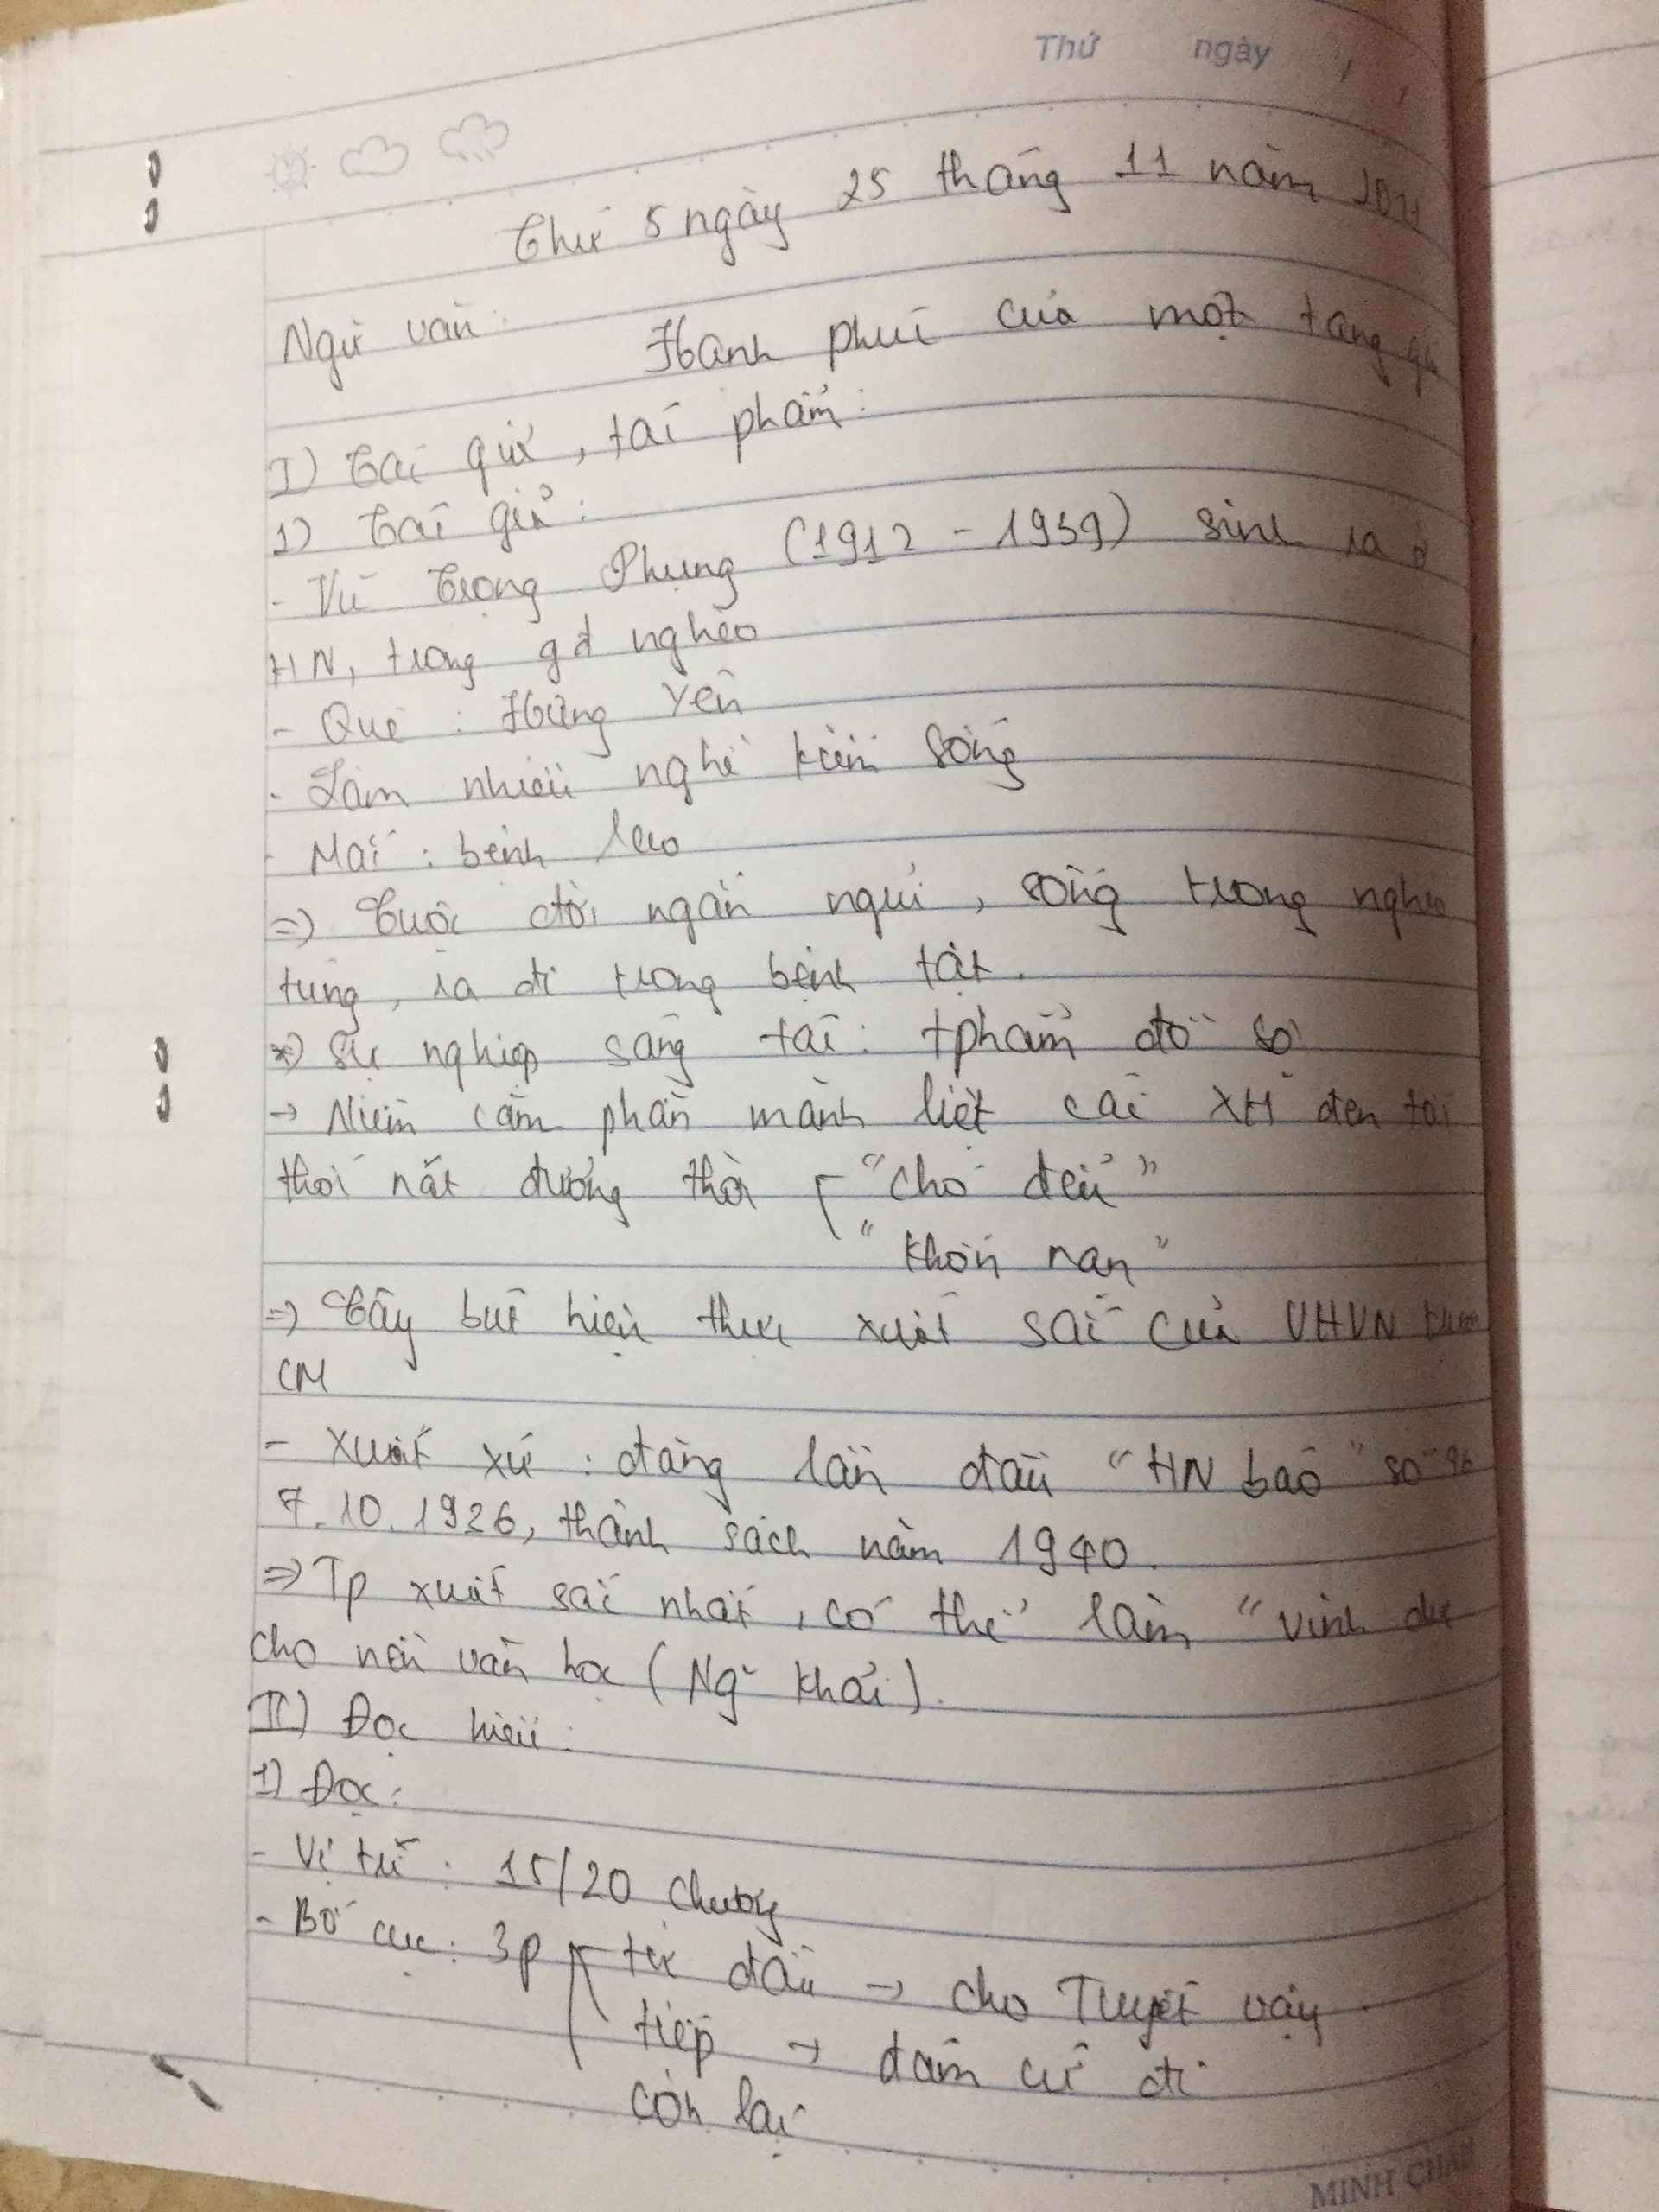 Thứ ngày
Thứ 5 ngày 25 tháng 11 năm 2021
Ngữ văn: Hạnh phúc của một tang
I) Tác giả, tác phẩm:
1) Tác giả:
- Vũ Trọng Phụng (1912 - 1939) sinh ra ở
HN, trong gđ nghèo
- Quê : Hưng Yên
- Làm nhiều nghề kiếm sống
- Mất : bệnh lao
=> Cuộc đời ngắn ngủi, sống trong nghèo
túng, ra đi trong bệnh tật.
*) Sự nghiệp sáng tác: tphẩm đồ sộ
→ Niềm căm phẫn mãnh liệt cái XH đen tối
thối nát đương thời "chó đểu"
"khốn nạn"
=> Cây bút hiện thực xuất sắc của VHVN trước
CM
- Xuất xứ : đăng lần đầu "HN báo" số
7.10.1926, thành sách năm 1940.
=> Tp xuất sắc nhất, có thể làm "vinh dự
cho nền văn học (Ng~ Khải).
II) Đọc hiểu:
1) Đọc:
- Vị trí : 15/20 chương
- Bố cục: 3p từ đầu → cho Tuyết vậy
tiếp → đám cứ đi
còn lại
MINH CHÂU